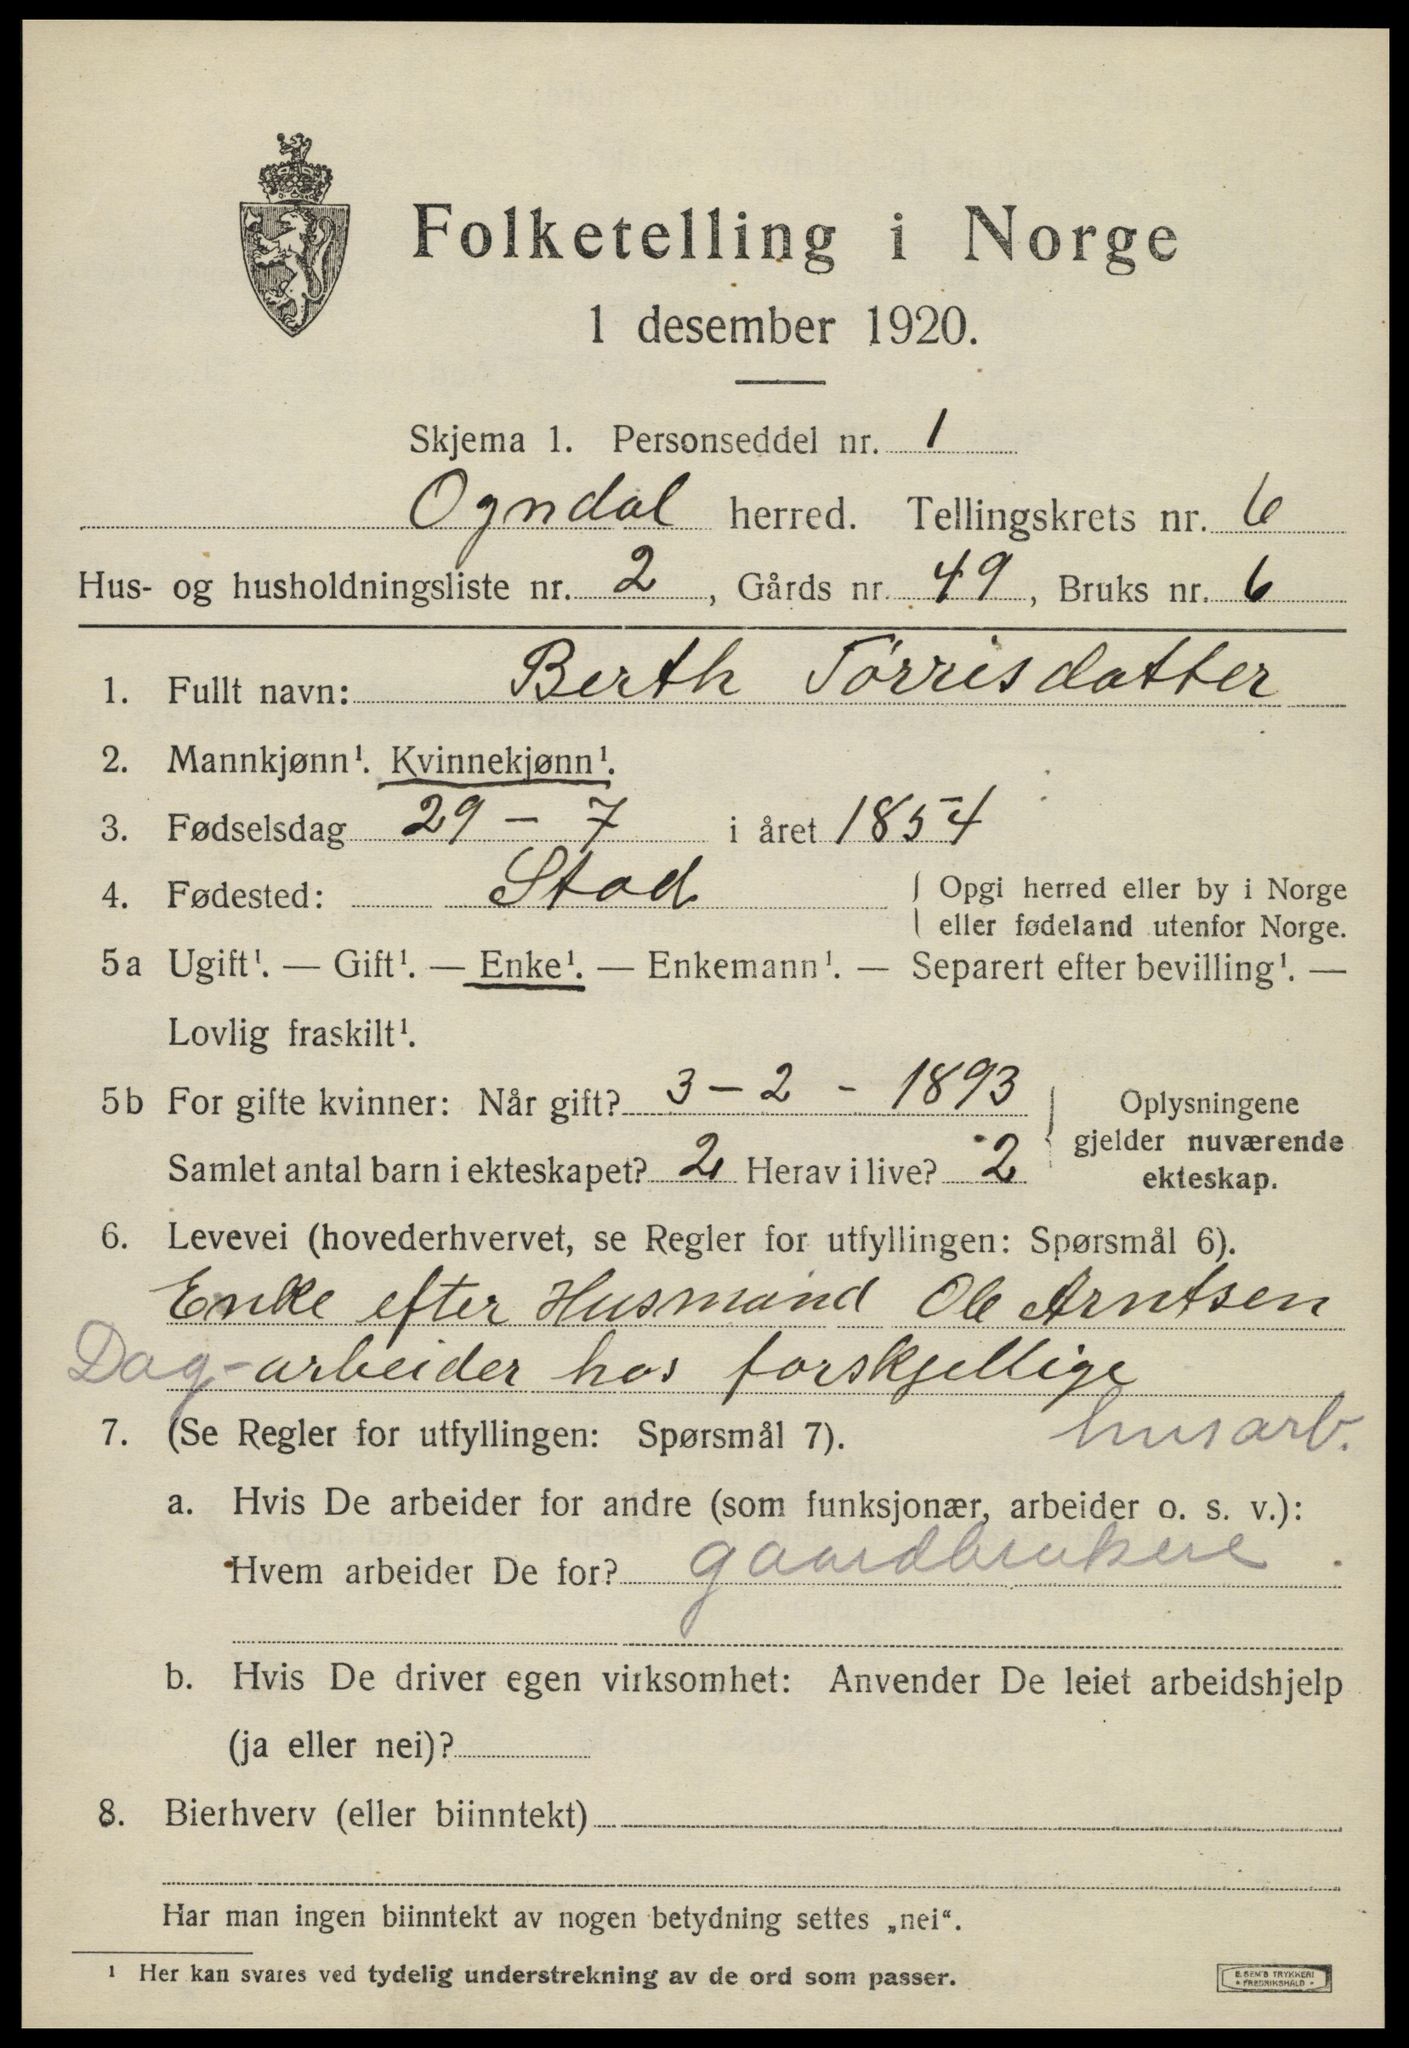 Folketelling i Norge
1 desember 1920.
Skjema 1. Personseddel nr. 1
Ogndal herred. Tellingskrets nr. 6
Hus- og husholdningsliste nr. 2, Gårds nr. 49, Bruks nr. 6
1. Fullt navn: Berth Tørrisdatter
2. Mannkjønn¹. Kvinnekjønn¹.
3. Fødselsdag 29 - 7 i året 1854
4. Fødested: Stod { Opgi herred eller by i Norge
eller fødeland utenfor Norge.
5a Ugift¹. — Gift¹. — Enke¹. — Enkemann¹. — Separert efter bevilling¹. —
Lovlig fraskilt¹.
5b For gifte kvinner: Når gift? 3 - 2 - 1893
Samlet antal barn i ekteskapet? 2 Herav i live? 2
Oplysningene
gjelder nuværende
ekteskap.
6. Levevei (hovederhvervet, se Regler for utfyllingen: Spørsmål 6).
Enke efter Husmand Ole Arntsen
Dag-arbeider hos forskjellige
husarb.
7. (Se Regler for utfyllingen: Spørsmål 7).
a. Hvis De arbeider for andre (som funksjonær, arbeider o. s. v.):
Hvem arbeider De for? gaardbrukere
b. Hvis De driver egen virksomhet: Anvender De leiet arbeidshjelp
(ja eller nei)?
8. Bierhverv (eller biinntekt)
Har man ingen biinntekt av nogen betydning settes „nei“.
¹ Her kan svares ved tydelig understrekning av de ord som passer.
E. SEM'S TRYKKERI
• FREDRIKSHALD •